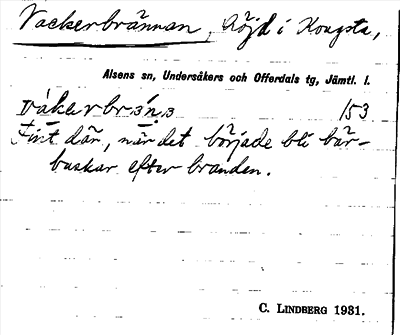 Vackerbrännan, höjd i Kougsta,
Alsens sn, Undersåkers och Offerdals tg, Jämtl. l.
153
Fint där, när det började bli bär-
buskar efter branden.
C. LINDBERG 1931.